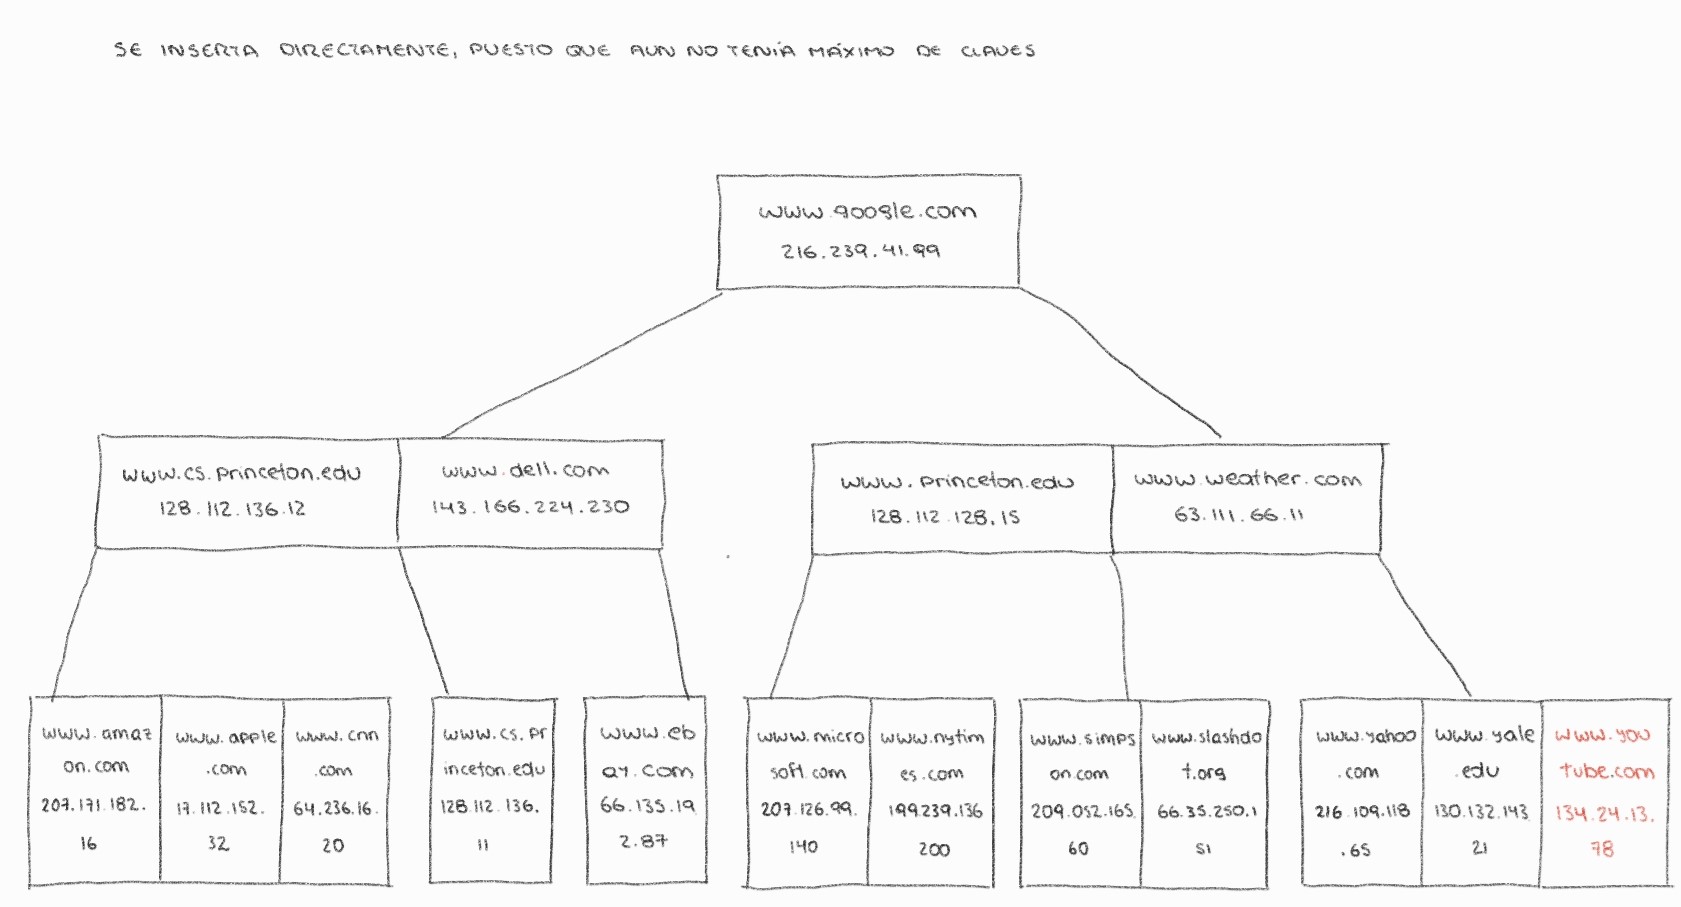 SE INSERTA DIRECTAMENTE, PUESTO QUE AUN NO TENÍA MÁXIMO DE CLAVES
www.google.com
216.239.41.99
www.cs.princeton.edu
128.112.136.12
www.dell.com
143.166.224.230
www.princeton.edu
128.112.128.15
www.weather.com
63.111.66.11
www.amaz
on.com
207.171.182.
16
www.apple
.com
17.112.152.
32
www.cnn
.com
64.236.16.
20
www.cs.pr
inceton.edu
128.112.136.
11
www.eb
ay.com
66.135.19
2.87
www.micro
soft.com
207.126.99.
140
www.nytim
es.com
199.239.136
200
www.simps
on.com
209.052.165
60
www.slashdo
t.org
66.35.250.1
51
www.yahoo
.com
216.109.118
.65
www.yale
.edu
130.132.143
21
www.you
tube.com
134.24.13.
78